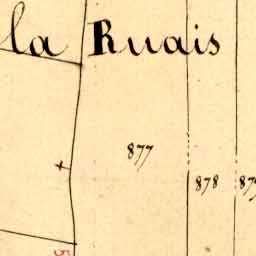 la Ruais
877
878